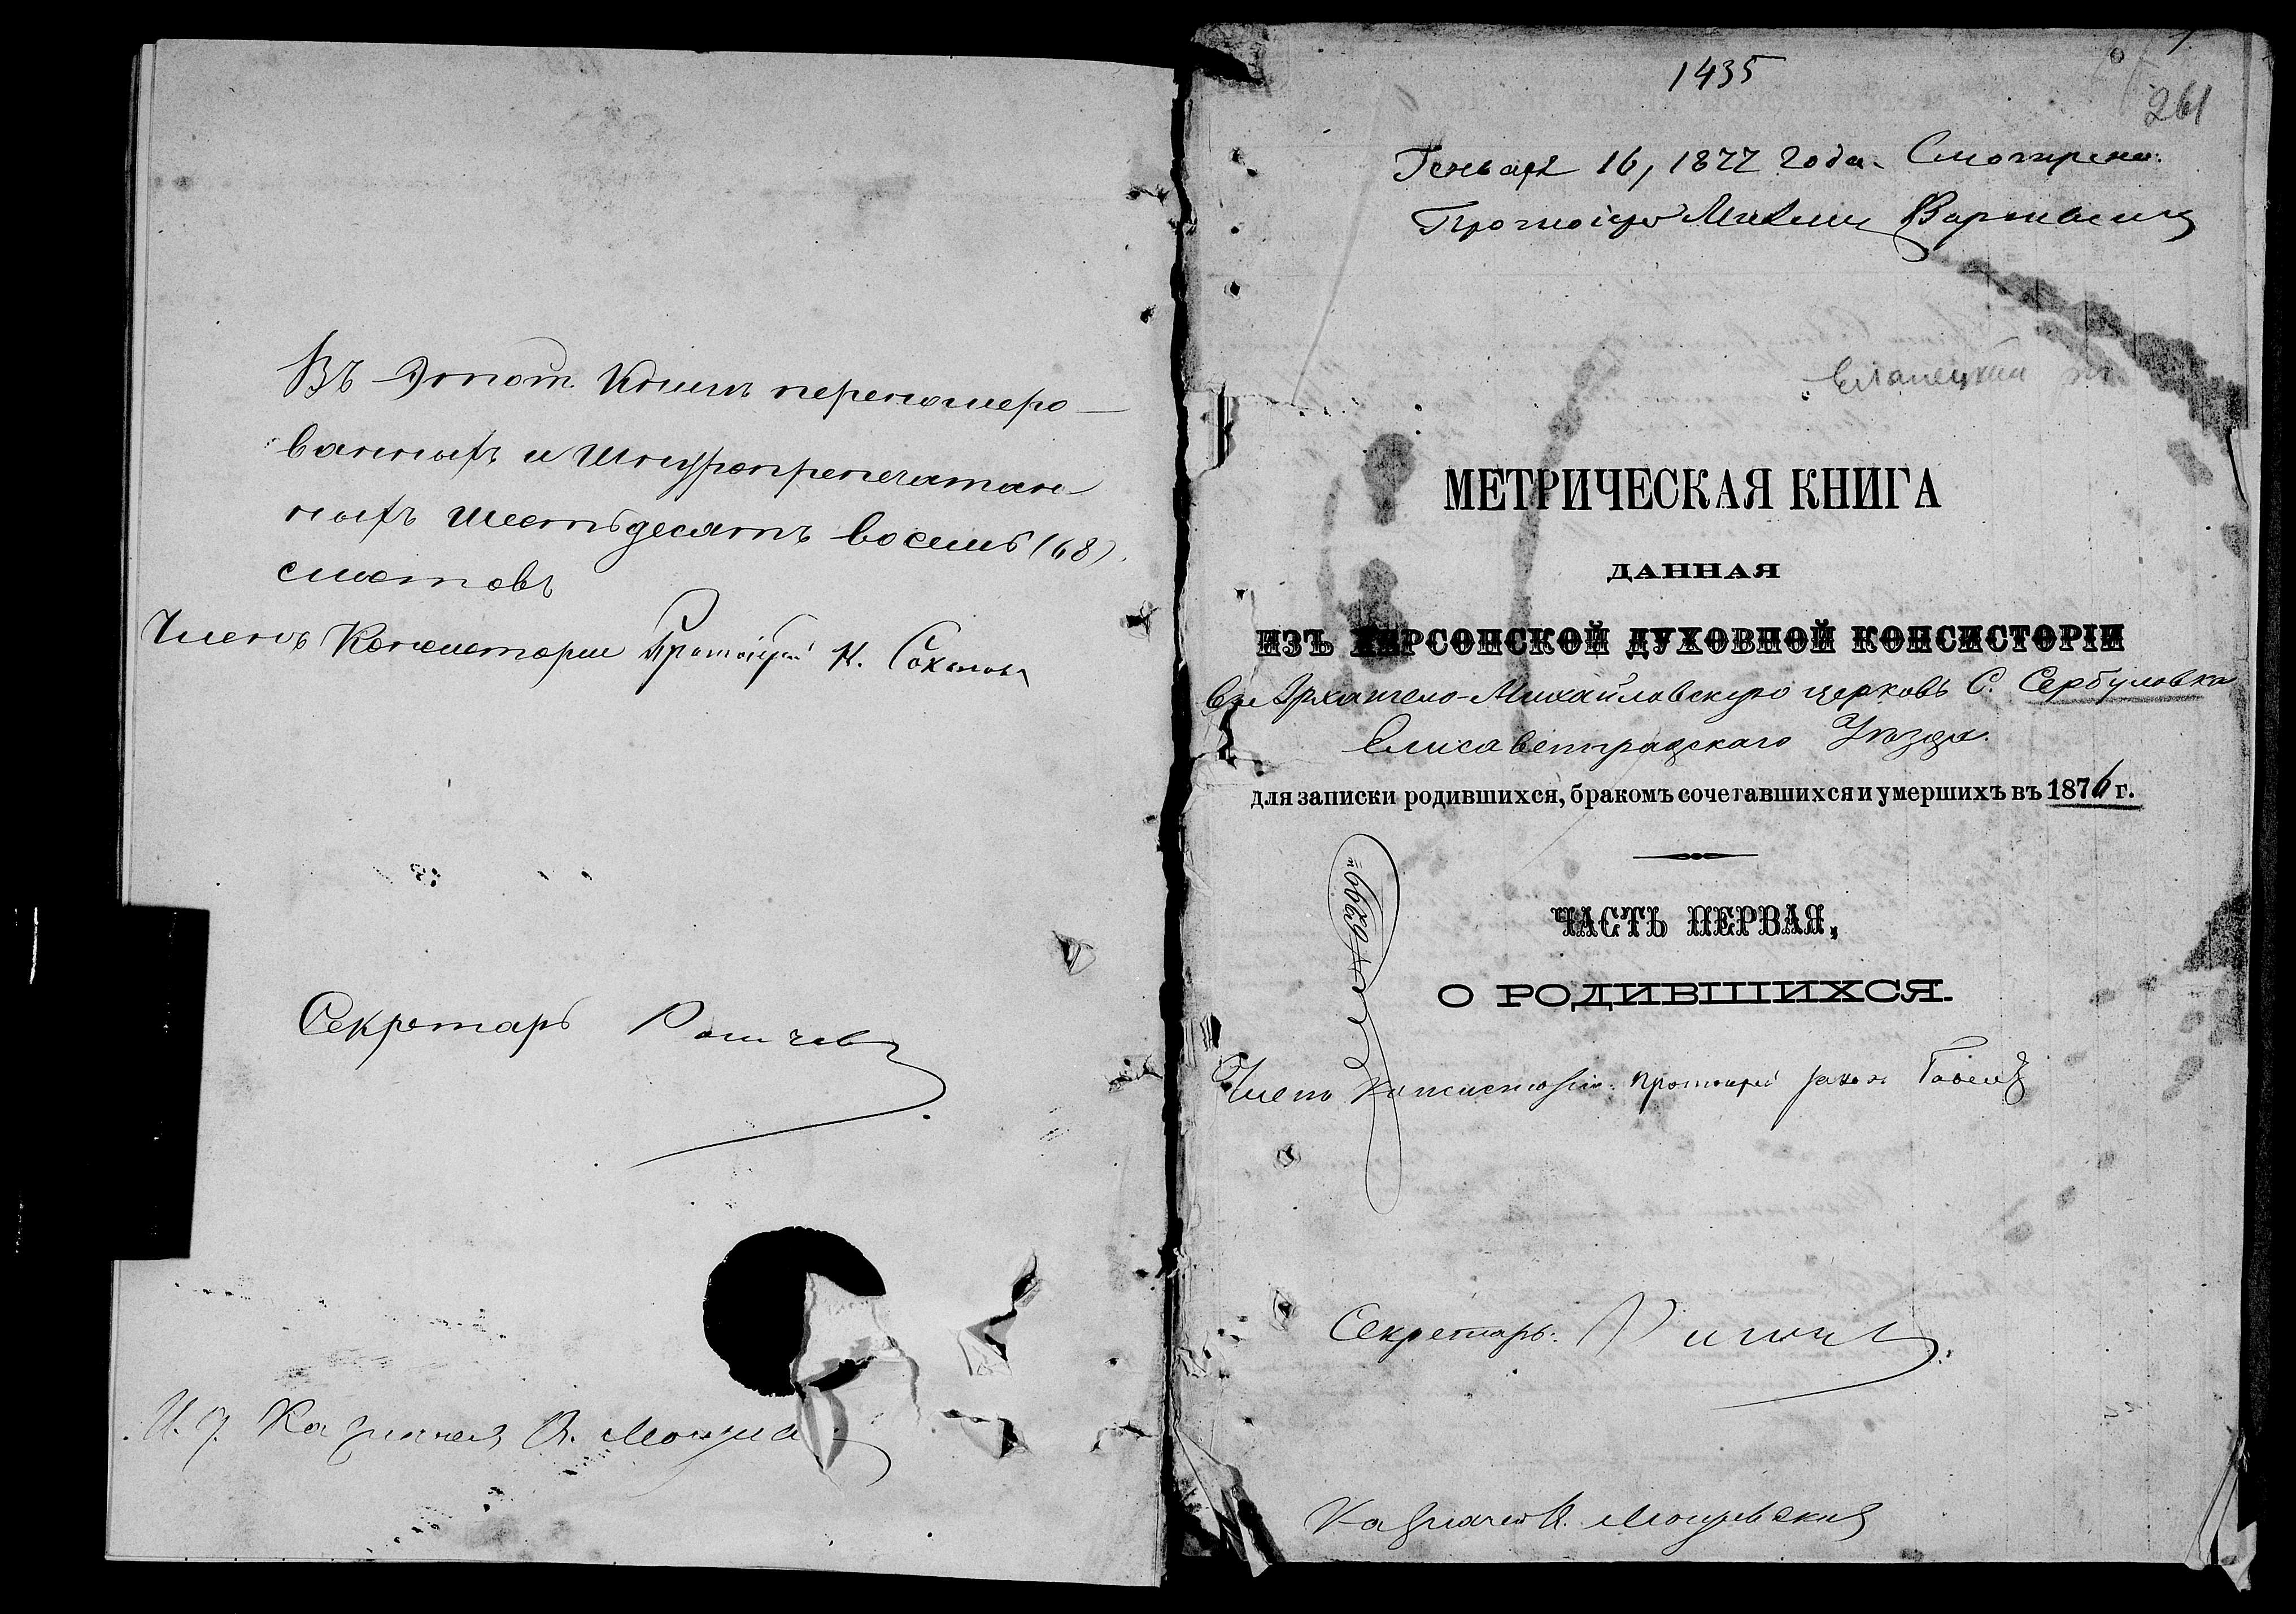 Въ этой Книгѣ перенумеро-
ванныхъ и шнуропрепечатан-
ныхъ шестьдесятъ восемь (68)
листовъ
Членъ Консисторіи Протоіерей Н. Соколовъ
Секретарь
И. д. Казначея В.
1435
261
Генваря 16, 1877 года. Смотрено.
Протоіерей
Еланецкий
МЕТРИЧЕСКАЯ КНИГА
ДАННАЯ
ИЗЪ ХЕРСОНСКОЙ ДУХОВНОЙ КОНСИСТОРІИ
въ Архангело-Михайловскую церковь С. Сербуловка
Елисаветградскаго Уѣзда.
для записки родившихся, бракомъ сочетавшихся и умершихъ въ 1876 г.
ЧАСТЬ ПЕРВАЯ,
О РОДИВШИХСЯ.
Членъ Консисторіи протоіерей
Секретарь
Казначей В.